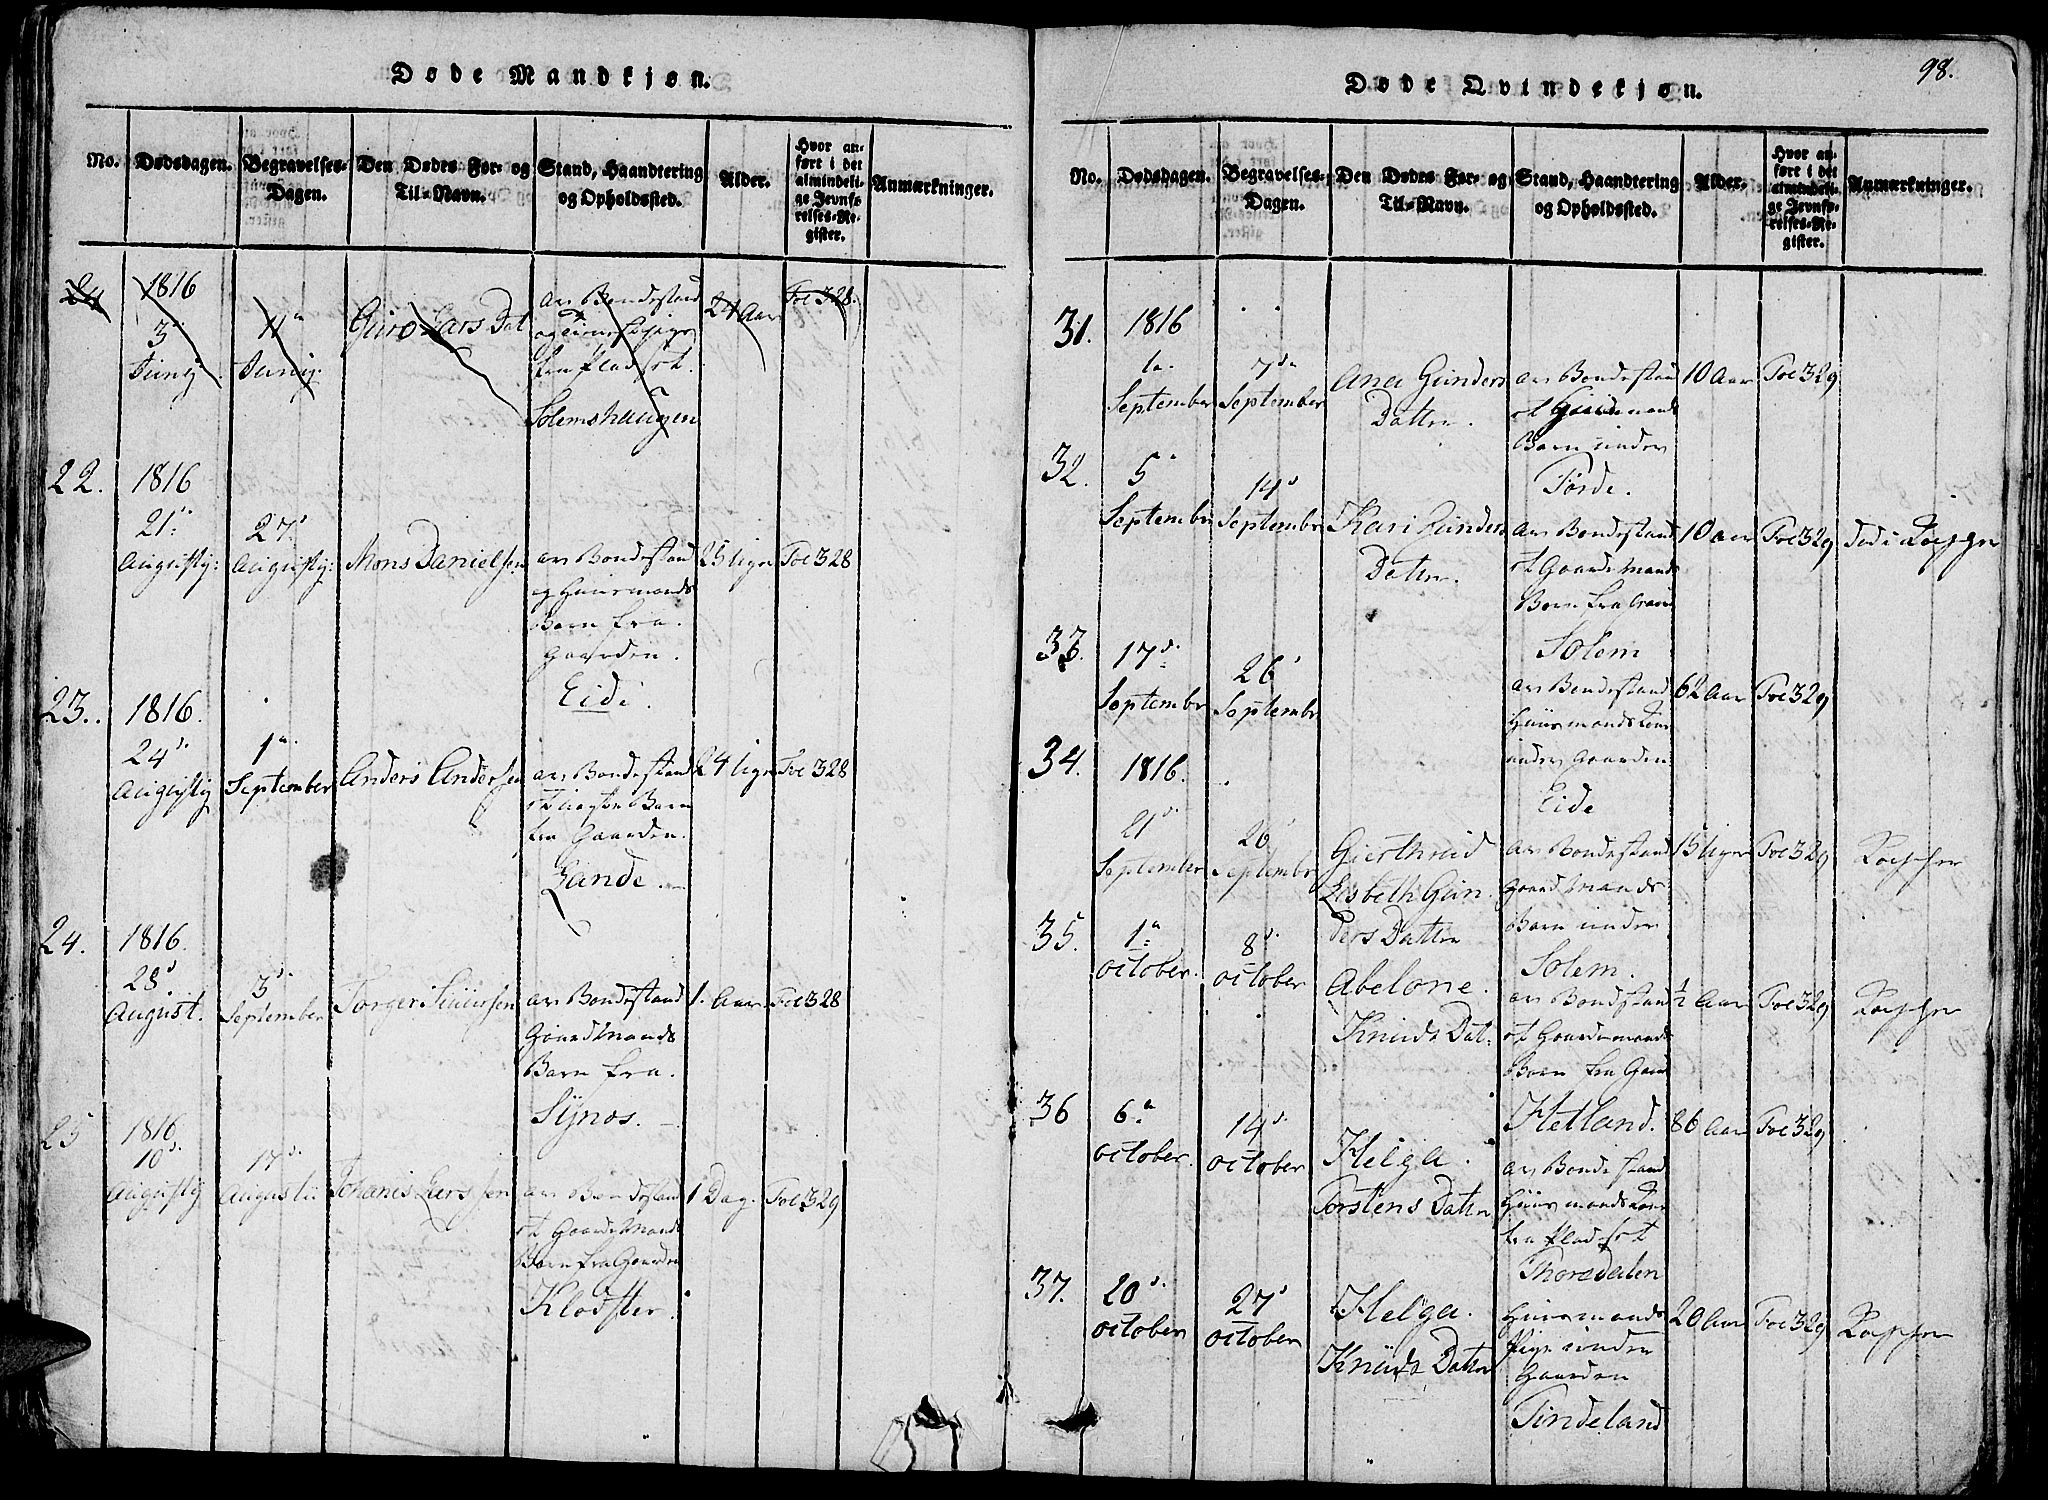 Døde Mandkjøn.
No. Dødsdagen. Begravelses-Dagen. Den Dødes For- og Til-Navn. Stand, Haandtering og Opholdssted. Alder. Hvor anført i det almindelige Jevnførelses-Register. Anmærkninger.
1816
3
Junij
11
Junij
Guro Lars Dat
av Bondestand
fra Pladset
Solemshaugen
24 Aar
Foe 328.
22.
1816
21
Augustij
27
Augustij
Mons Danielsen
av Bondestand
og Huusmands
Barn fra
Gaarden
Eide.
25 Uger
Foe 328
23.
1816.
24
Augustij
1
September
Anders Andersen
av Bondestand
Barn
fra Gaarden
Lande.
24 Uger
Foe 328
24.
1816.
28
August.
3
September
Torger Siursen
av Bondestand
Gaardmands
Barn fra
Synes.
1. Aar
Foe 328
25
1816
10
Augustij
17
Augusti
Johanis Larssen
av Bondestand
et Gaardemands
Barn fra Gaarden
Klodster.
1 Dag.
Foe 329
Døde Qvindekjøn.
98.
No. Dødsdagen. Begravelses-Dagen. Den Dødes For- og Til-Navn. Stand, Haandtering og Opholdssted. Alder. Hvor anført i det almindelige Jevnførelses-Register. Anmærkninger.
31.
1816
1
September
7
September
Ana Gunders
Datter.
av Bondestand
et
Barn under
Førde.
10 Aar
Foe 329
32.
5
September
14
September
Kari Gunders
Datter.
av Bondestand
et Gaardemands
Barn fra Gaard
Solem
10 Aar
Foe 329
Død i Kopper
33.
17
September
26
September
av Bondestand
Huusmandskone
under Gaarden
Eide
62 Aar
Foe 329
34.
1816.
21
September
26
September
Gierthrud
Lisbeth Gun
ders Datter
av Bondestand
Gaardmands
Barn under
Solem.
15 Uger
Foe 329
Kopper
35.
1
October.
8
October
Abelone.
Knuds Dat:
av Bondestand
et Gaardemands
Barn fra Gaard
Hetland.
1/2 Aar
Foe 329
Kopper
36
6
October.
14
October
Helga.
Torstens Datter
av Bondestand
Huusmandskone
fra Pladset
Thorsdalen
86 Aar
Foe 329
37.
20
October
27
October
Helga.
Knuds Datter
Huusmands
Pige under
Gaarden
Tindeland
20 Aar
Foe 329
Kopper